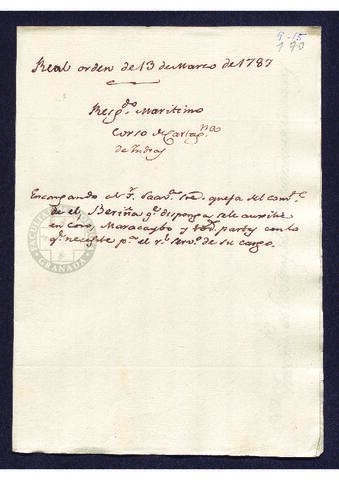 9-15
190
Real orden de 13 de Marzo de 1787
Resg.do Maritimo
Corso de Cartag.na
de Indias
Encargando al S. Saav.a qe. queja del com.te
de el Beriña q.e disponga se le auxilie
en Maracaybo y partes con lo
q.e necesite p.a el r.l serv.o de su cargo.
FACULTAD
GRANADA